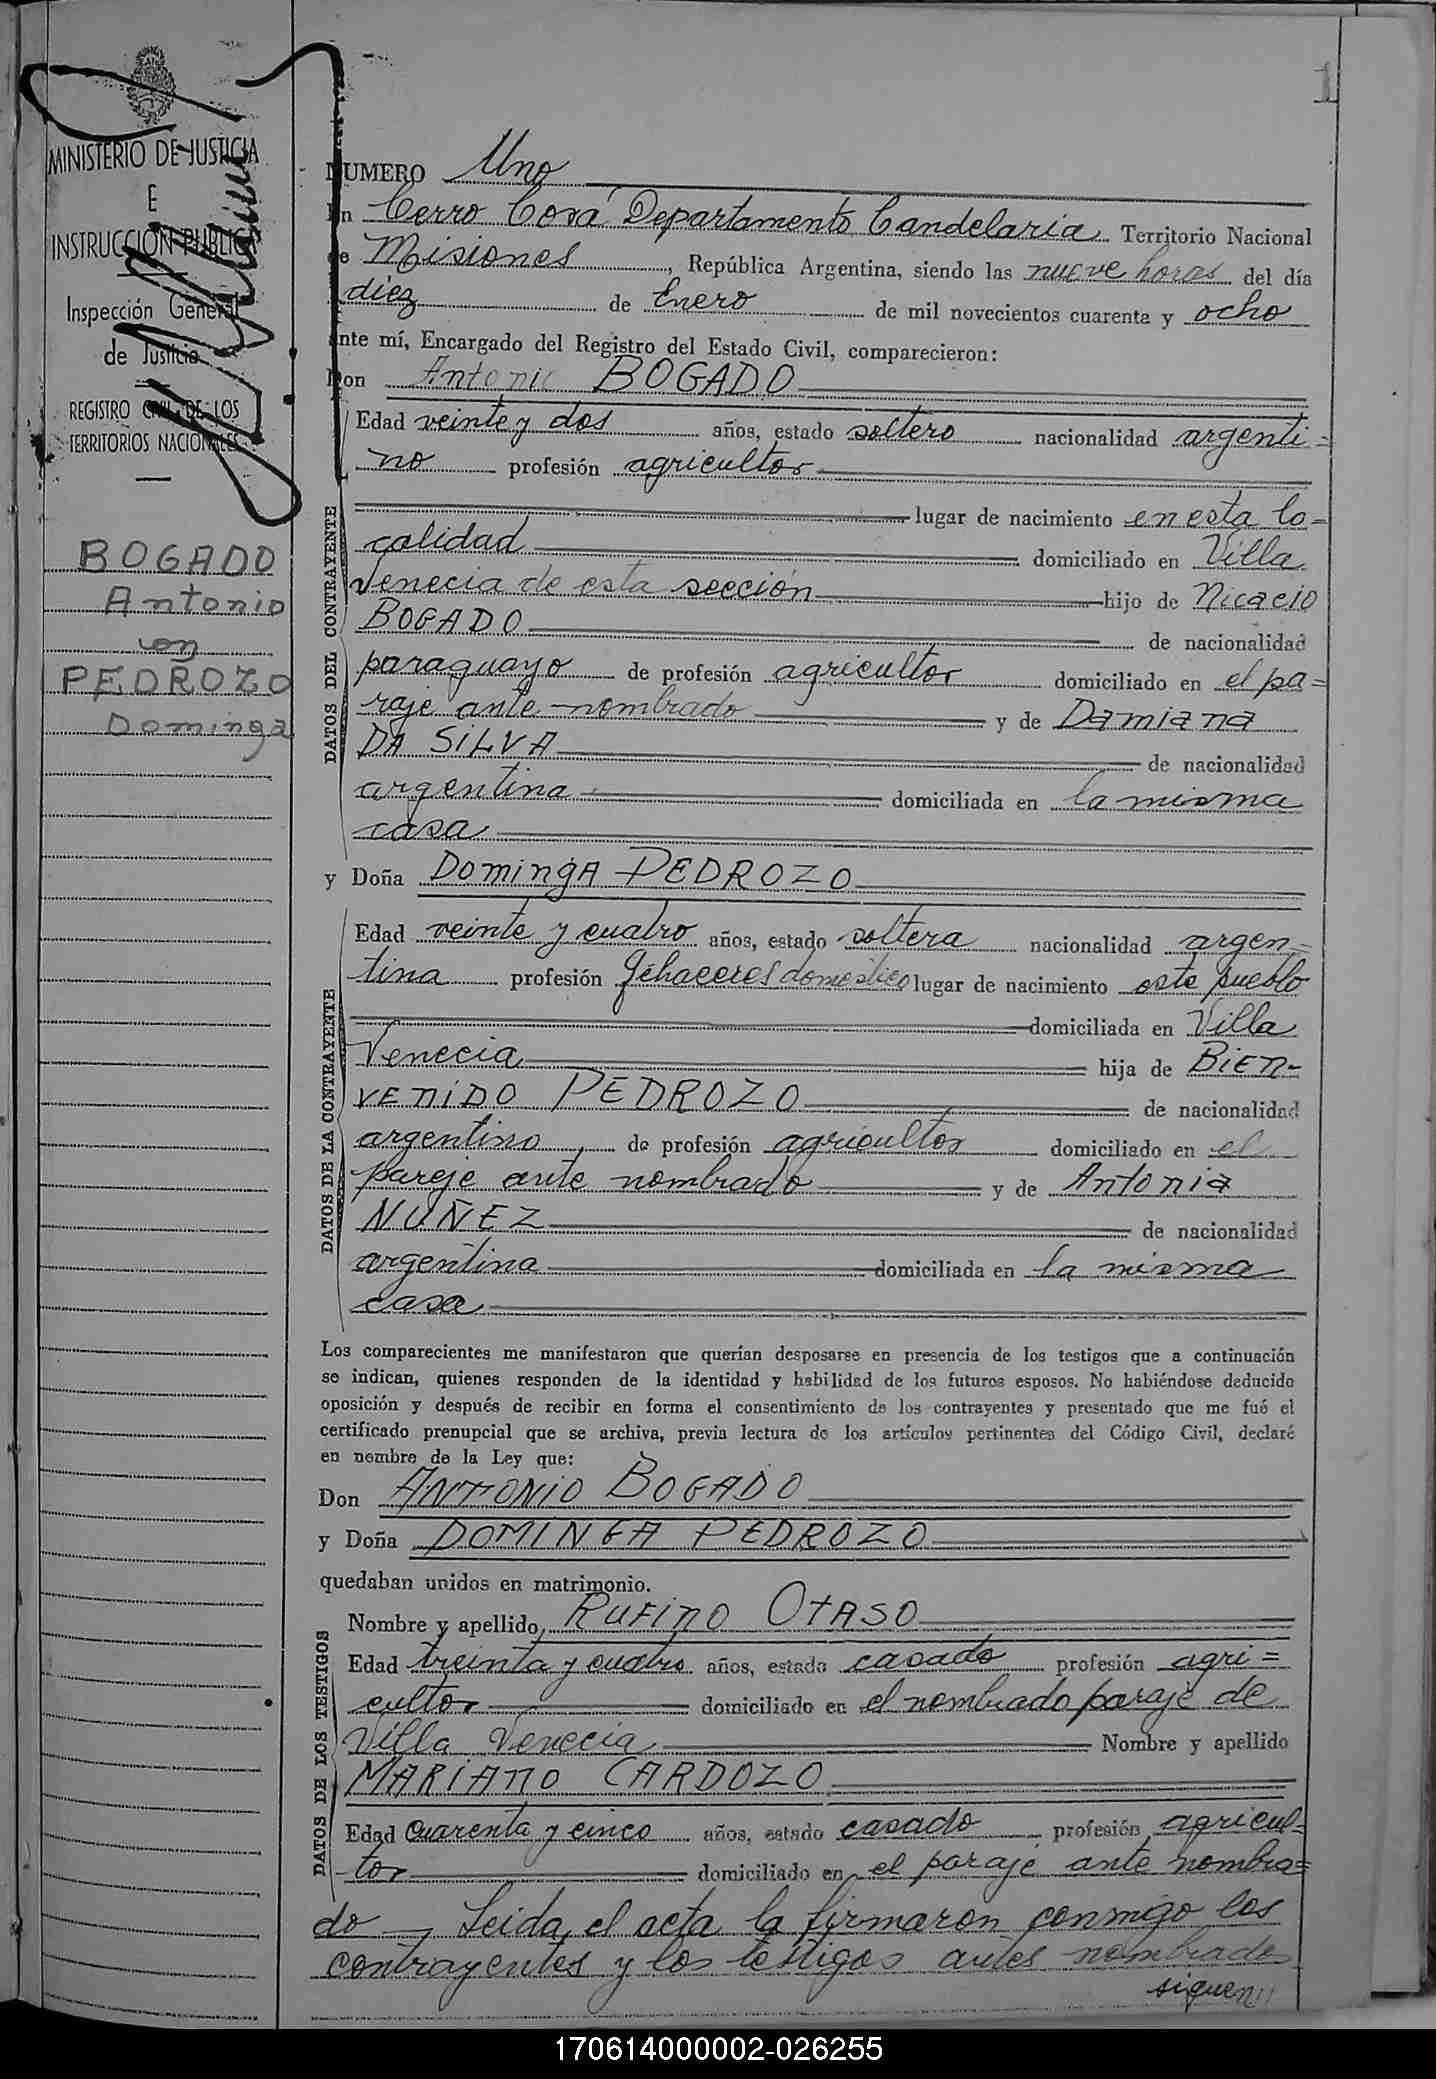 1
MINISTERIO DE JUSTICIA
E
INSTRUCCIÓN PUBLICA
Inspección General
de Justicia
REGISTRO CIVIL DE LOS
TERRITORIOS NACIONALES
BOGADO
Antonio
con
PEDROZO
Dominga
NUMERO Uno
En Cerro Corá Departamento Candelaria Territorio Nacional
de Misiones, República Argentina, siendo las nueve horas del día
diez de Enero de mil novecientos cuarenta y ocho
ante mí, Encargado del Registro del Estado Civil, comparecieron:
Don Antonio BOGADO
DATOS DEL CONTRAYENTE
Edad veinte y dos años, estado soltero nacionalidad argenti=
no profesión agricultor
lugar de nacimiento en esta lo=
calidad domiciliado en Villa
Venecia de esta sección hijo de Nicacio
BOGADO de nacionalidad
paraguayo de profesión agricultor domiciliado en el pa=
raje ante nombrado y de Damiana
DA SILVA de nacionalidad
argentina domiciliada en la misma
casa
y Doña Dominga PEDROZO
DATOS DE LA CONTRAYENTE
Edad veinte y cuatro años, estado soltera nacionalidad argen=
tina profesión Qehaceres domestico lugar de nacimiento este pueblo
domiciliada en Villa
Venecia hija de BIEN-
VENIDO PEDROZO de nacionalidad
argentino de profesión agricultor domiciliado en el
pareje ante nombrado y de Antonia
NUÑEZ de nacionalidad
argentina domiciliada en la misma
casa
Los comparecientes me manifestaron que querían desposarse en presencia de los testigos que a continuación
se indican, quienes responden de la identidad y habilidad de los futuros esposos. No habiéndose deducido
oposición y después de recibir en forma el consentimiento de los contrayentes y presentado que me fué el
certificado prenupcial que se archiva, previa lectura de los artículos pertinentes del Código Civil, declaré
en nombre de la Ley que:
Don ANTONIO BOGADO
y Doña DOMINGA PEDROZO
quedaban unidos en matrimonio.
DATOS DE LOS TESTIGOS
Nombre y apellido, RUFINO OTASO
Edad treinta y cuatro años, estado casado profesión agri=
cultor domiciliado en el nombrado paraje de
Villa Venecia Nombre y apellido
MARIANO CARDOZO
Edad Cuarenta y cinco años, estado casado profesión agricul=
tor domiciliado en el paraje ante nombra=
do — Leida el acta la firmaron conmigo los
contrayentes y los testigos antes nombrados
siguen//
170614000002-026255